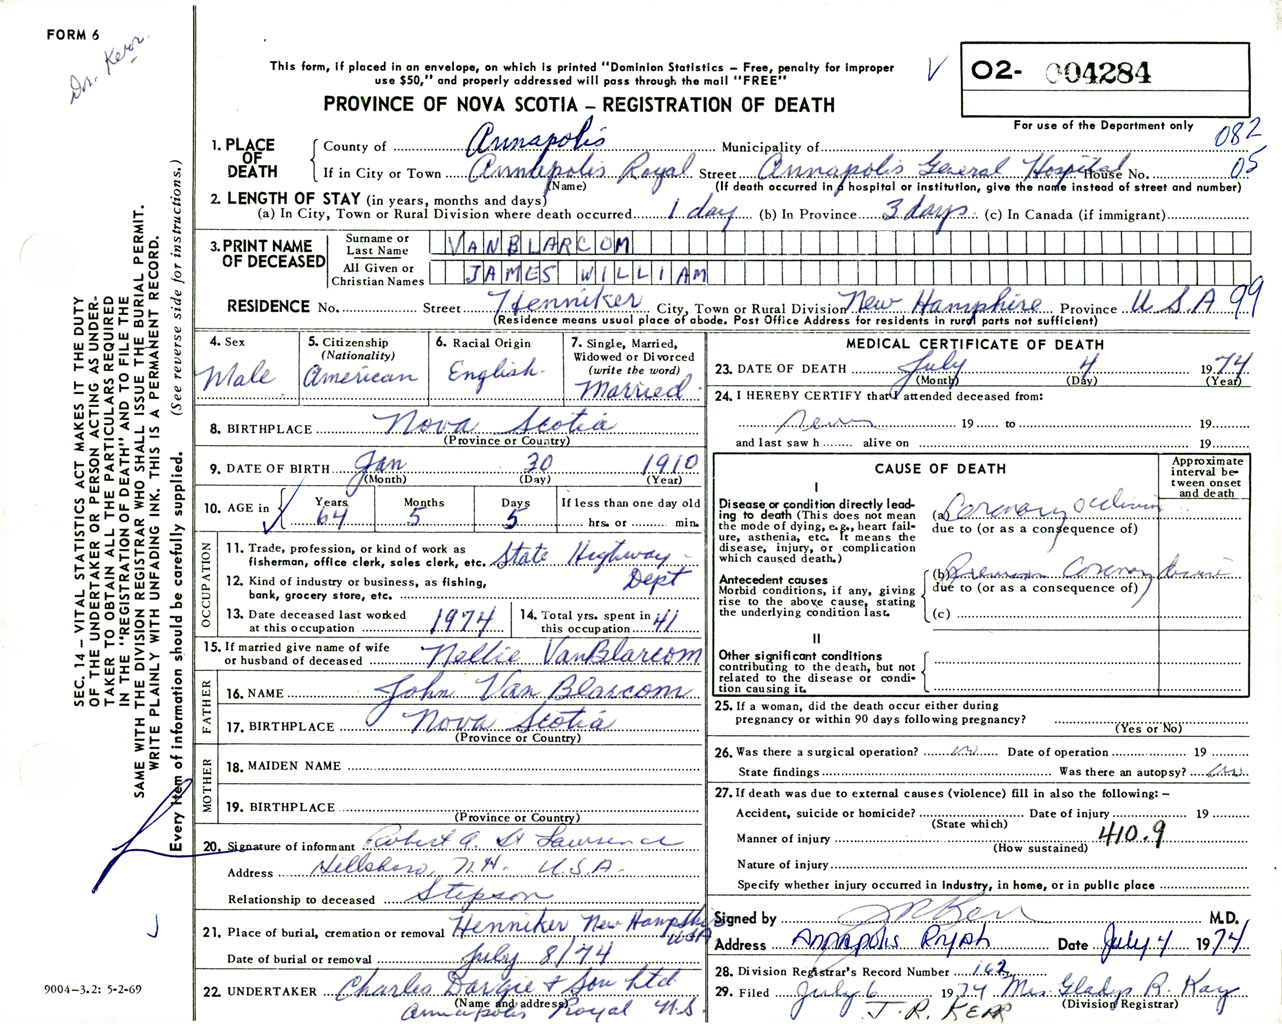 FORM 6
Dr. Kerr.
This form, if placed in an envelope, on which is printed "Dominion Statistics — Free, penalty for improper
use $50," and properly addressed will pass through the mail "FREE"
PROVINCE OF NOVA SCOTIA — REGISTRATION OF DEATH
O2- 004284
For use of the Department only
082
05
1. PLACE OF DEATH
County of Annapolis Municipality of
If in City or Town Annapolis Royal Street Annapolis General Hospital House No.
(Name) (If death occurred in a hospital or institution, give the name instead of street and number)
2. LENGTH OF STAY (in years, months and days)
(a) In City, Town or Rural Division where death occurred 1 day (b) In Province 3 days (c) In Canada (if immigrant)
3. PRINT NAME OF DECEASED
Surname or Last Name VANBLARCOM
All Given or Christian Names JAMES WILLIAM
RESIDENCE No. Street Henniker City, Town or Rural Division New Hamphire Province U.S.A 99
(Residence means usual place of abode. Post Office Address for residents in rural parts not sufficient)
4. Sex
Male
5. Citizenship
(Nationality)
American
6. Racial Origin
English
7. Single, Married,
Widowed or Divorced
(write the word)
Married
8. BIRTHPLACE Nova Scotia
(Province or Country)
9. DATE OF BIRTH Jan 30 1910
(Month) (Day) (Year)
10. AGE in
Years Months Days If less than one day old
64 5 5 hrs. or min.
OCCUPATION
11. Trade, profession, or kind of work as
fisherman, office clerk, sales clerk, etc. State Highway
Dept
12. Kind of industry or business, as fishing,
bank, grocery store, etc.
13. Date deceased last worked
at this occupation 1974
14. Total yrs. spent in
this occupation 41
15. If married give name of wife
or husband of deceased Nellie VanBlarcom
FATHER
16. NAME John Van Blarcom
17. BIRTHPLACE Nova Scotia
(Province or Country)
MOTHER
18. MAIDEN NAME
19. BIRTHPLACE
(Province or Country)
20. Signature of informant Robert A. St Lawrence
Address Hillsboro, N.H. U.S.A.
Relationship to deceased Stepson
21. Place of burial, cremation or removal Henniker New Hampshire
USA
Date of burial or removal July 8/74
22. UNDERTAKER Charles Dargie & Son Ltd
(Name and address)
Annapolis Royal N.S.
MEDICAL CERTIFICATE OF DEATH
23. DATE OF DEATH July 4 1974
(Month) (Day) (Year)
24. I HEREBY CERTIFY that I attended deceased from:
19 to 19
and last saw h alive on 19
CAUSE OF DEATH
Approximate
interval be-
tween onset
and death
I
Disease or condition directly lead-
ing to death (This does not mean
the mode of dying, e.g., heart fail-
ure, asthenia, etc. It means the
disease, injury, or complication
which caused death.)
(a) Coronary occlusion
due to (or as a consequence of)
Antecedent causes
Morbid conditions, if any, giving
rise to the above cause, stating
the underlying condition last.
(b) Previous Coronary
due to (or as a consequence of)
(c)
II
Other significant conditions
contributing to the death, but not
related to the disease or condi-
tion causing it.
25. If a woman, did the death occur either during
pregnancy or within 90 days following pregnancy?
(Yes or No)
26. Was there a surgical operation? no Date of operation 19
State findings Was there an autopsy? no
27. If death was due to external causes (violence) fill in also the following: —
Accident, suicide or homicide? Date of injury 19
(State which)
Manner of injury 410.9
(How sustained)
Nature of injury
Specify whether injury occurred in industry, in home, or in public place
Signed by J R Kerr M.D.
Address Annapolis Royal Date July 4 1974
28. Division Registrar's Record Number 162
29. Filed July 6 1974 Mrs. Gladys R. Kay
(Division Registrar)
J. R. KERR
SEC. 14 — VITAL STATISTICS ACT MAKES IT THE DUTY
OF THE UNDERTAKER OR PERSON ACTING AS UNDER-
TAKER TO OBTAIN ALL THE PARTICULARS REQUIRED
IN THE "REGISTRATION OF DEATH" AND TO FILE THE
SAME WITH THE DIVISION REGISTRAR WHO SHALL ISSUE THE BURIAL PERMIT.
WRITE PLAINLY WITH UNFADING INK. THIS IS A PERMANENT RECORD.
Every item of information should be carefully supplied. (See reverse side for instructions.)
9004-3.2: 5-2-69